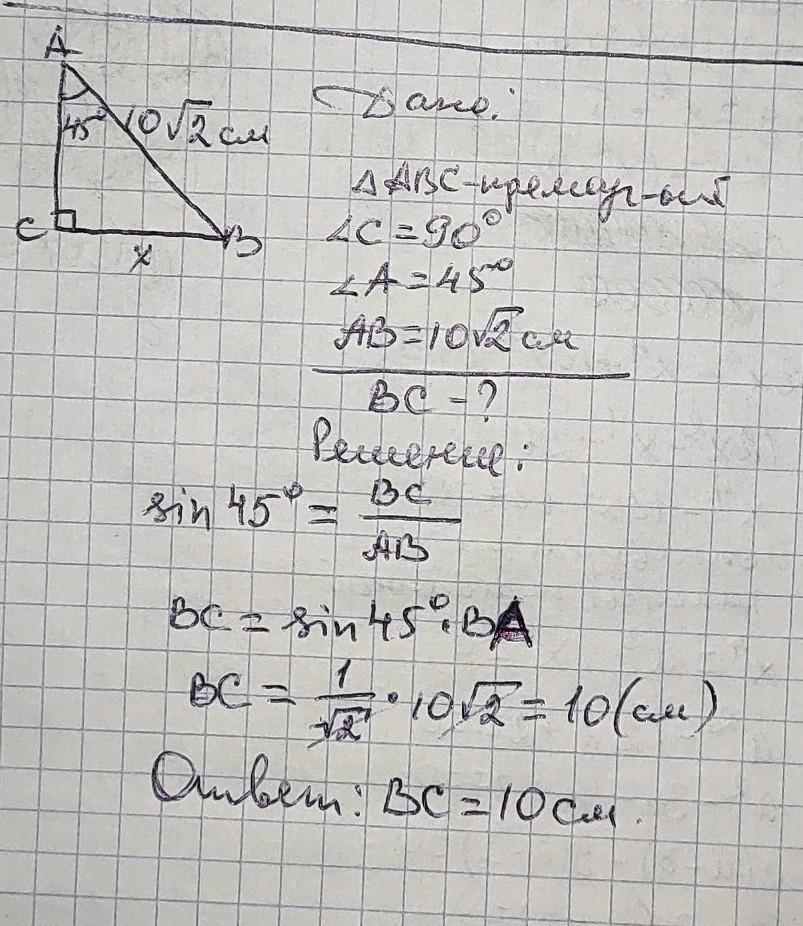 A
45° 10√2 см
C
B
x
Дано:
△ABC-прямоуг-ый
∠C=90°
∠A=45°
AB=10√2 см
BC-?
Решение:
sin 45° = BC/AB
BC = sin 45° · BA
BC = 1/√2 · 10√2 = 10 (см)
Ответ: BC = 10 см.